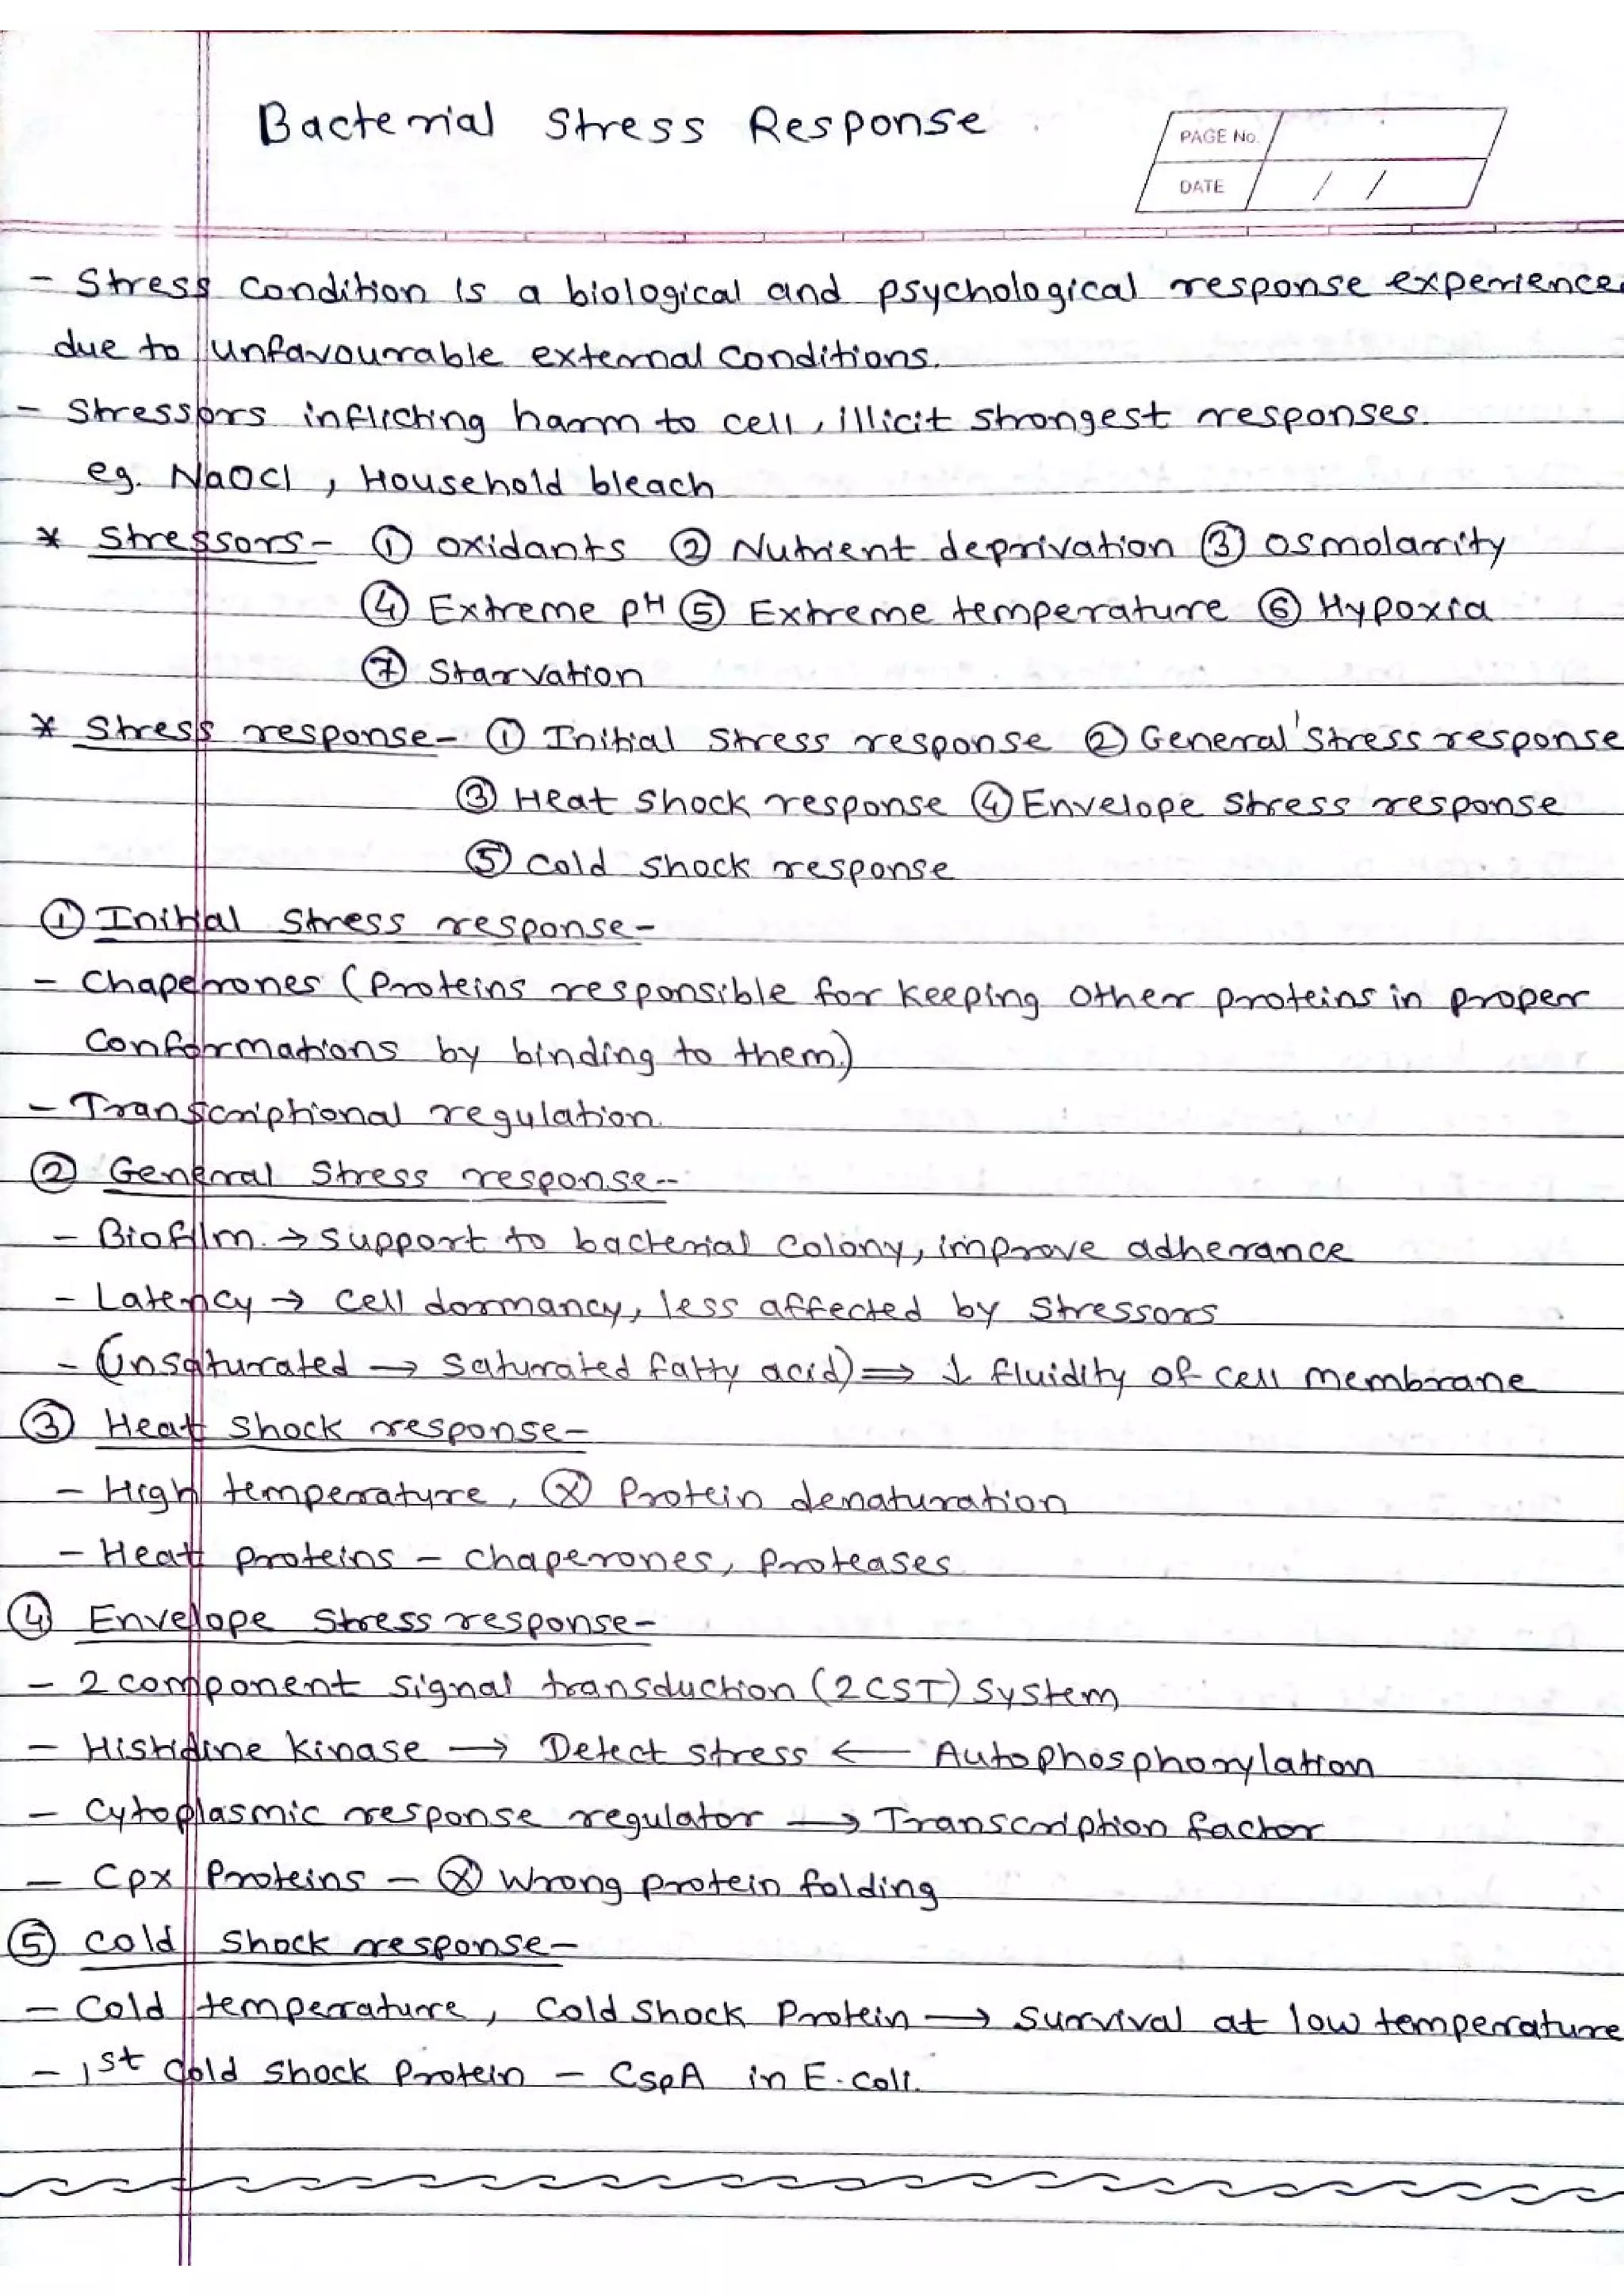 Bacterial Stress Response
PAGE No.
DATE / /
- Stress condition is a biological and psychological response experience
due to unfavourable external conditions.
- Stressors inflicting harm to cell, illicit strongest responses.
eg. NaOCl, Household bleach
* Stressors- ① oxidants ② Nutrient deprivation ③ osmolarity
④ Extreme pH ⑤ Extreme temperature ⑥ Hypoxia
⑦ Starvation
* Stress response- ① Initial stress response ② General stress response
③ Heat shock response ④ Envelope stress response
⑤ Cold shock response
① Initial stress response-
- Chaperones (Proteins responsible for keeping other proteins in proper
Conformations by binding to them.)
- Transcriptional regulation.
② General stress response--
- Biofilm. → support to bacterial colony, improve adherance
- Latency → cell dormancy, less affected by stressors
- (Unsaturated → saturated fatty acid) ⇒ ↓ fluidity of cell membrane
③ Heat shock response-
- High temperature, ⓧ Protein denaturation
- Heat proteins - chaperones, proteases
④ Envelope stress response-
- 2 component signal transduction (2CST) system
- Histidine kinase → Detect stress ← Autophosphorylation
- Cytoplasmic response regulator → Transcription factor
- Cpx Proteins - ⓧ Wrong protein folding
⑤ Cold shock response-
- Cold temperature, Cold shock Protein → survival at low temperature
- 1st Cold shock Protein - CspA in E.coli.